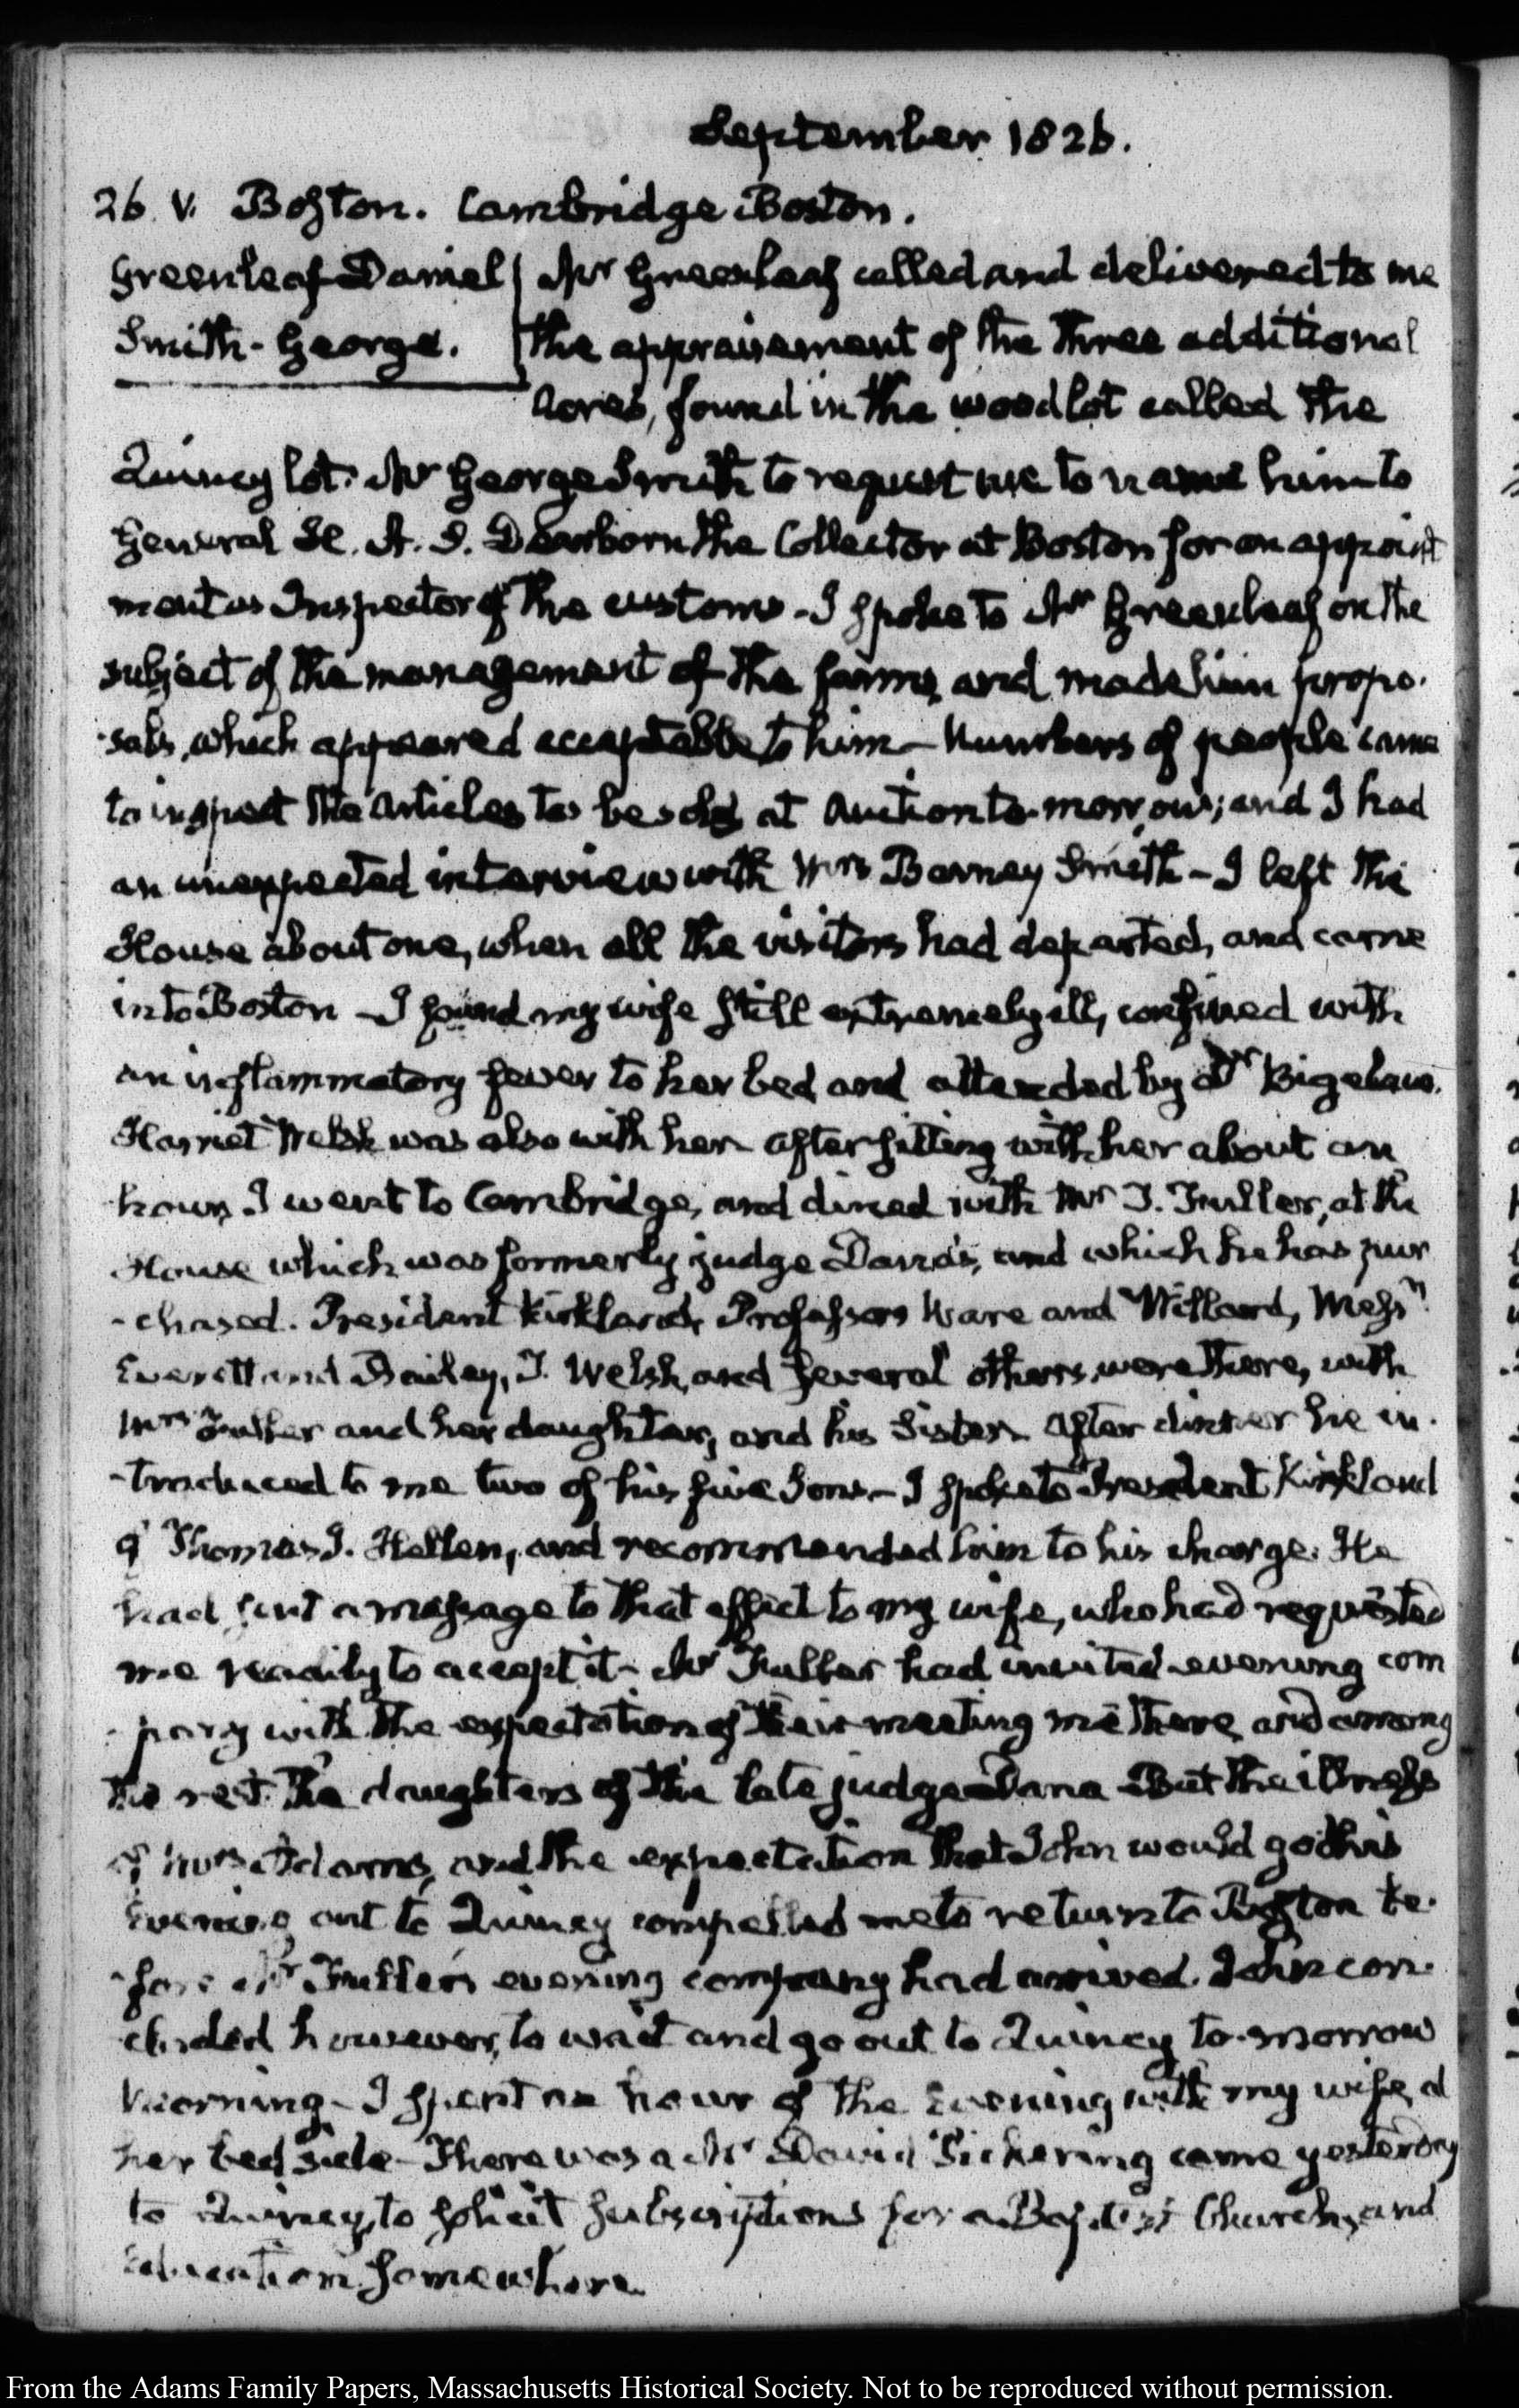 September 1826.
26. V. Boston. Cambridge Boston.
Greenleaf Daniel Mr Greenleaf called and delivered to me
Smith- George. the appraisement of the three additional
Acres, found in the wood lot called the
Quincy lot. Mr George Smith to request me to name him to
General H. A. S. Dearborn the Collector at Boston for an appoint
ment as Inspector of the customs - I spoke to Mr Greenleaf on the
subject of the management of the farms, and made him propo-
-sals, which appeared acceptable to him - Numbers of people came
to inspect the Articles to be sold at Auction to-morrow; and I had
an unexpected interview with Mrs Barney Smith - I left the
House about one, when all the visitors had departed, and came
into Boston - I found my wife still extremely ill, confined with
an inflammatory fever to her bed and attended by Dr Bigelow.
Harriet Welsh was also with her after sitting with her about an
hour, I went to Cambridge, and dined with Mr T. Fuller, at the
House which was formerly judge Dana's, and which he has pur
-chased. President Kirkland, Professors Ware and Willard, Messrs
Everett and Bailey, T. Welsh, and several others, were there, with
Mrs Fuller and her daughter, and his Sister. After dinner he in-
-troduced to me two of his five Sons - I spoke to President Kirkland
of Thomas J. Hellen, and recommended him to his charge. He
had sent a message to that effect to my wife, who had requested
me readily to accept it - Mr Fuller had invited evening com
-pany with the expectation of their meeting me there, and among
the rest the daughters of the late judge Dana. But the illness
of Mrs Adams, and the expectation that John would go this
Evening out to Quincy compelled me to return to Boston be-
-fore Mr Fuller's evening company had arrived. John con-
cluded however, to wait and go out to Quincy to-morrow
Morning - I spent an hour of the Evening with my wife, at
her bed side - There was a Mr David Pickering came yesterday
to Quincy, to solicit subscriptions for a Baptist Church, and
Education somewhere.
From the Adams Family Papers, Massachusetts Historical Society. Not to be reproduced without permission.